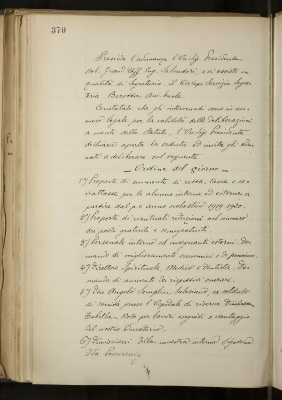 370
Presiede l'adunanza l'On. Sig. Presidente
Nob. Grand'Uff. Ing. Salvadori, e vi assiste in
qualità di Segretario il
Constatato che gli intervenuti sono in nu-
mero legale per la validità delle deliberazioni
a mente dello Statuto, l'On. Sig. Presidente
dichiara aperta la seduta ed invita gli adu-
nati a deliberare sul seguente
- Ordine del giorno -
1°) Proposte di aumento di retta, tassa e so-
pratassa, per le alunne interne ed esterne a
partire dal p.v. anno scolastico 1919-1920.
2°) Proposta di eventuali riduzioni nel numero
dei posti gratuiti e semigratuiti.
3°) Personale interno ed insegnanti esterni. Do-
mande di miglioramenti economici e di pensione.
4°) Direttore Spirituale, Medico e Dentista. Do-
manda di aumento dei rispettivi onorari.
5°) Don Angelo Semplici Salesiano, ex soldato
di sanità presso l'Ospedale di riserva
Isabella. Nota per lavori eseguiti a vantaggio
del nostro Educatorio.
6°) Dimissioni della maestra interna signorina
Ida